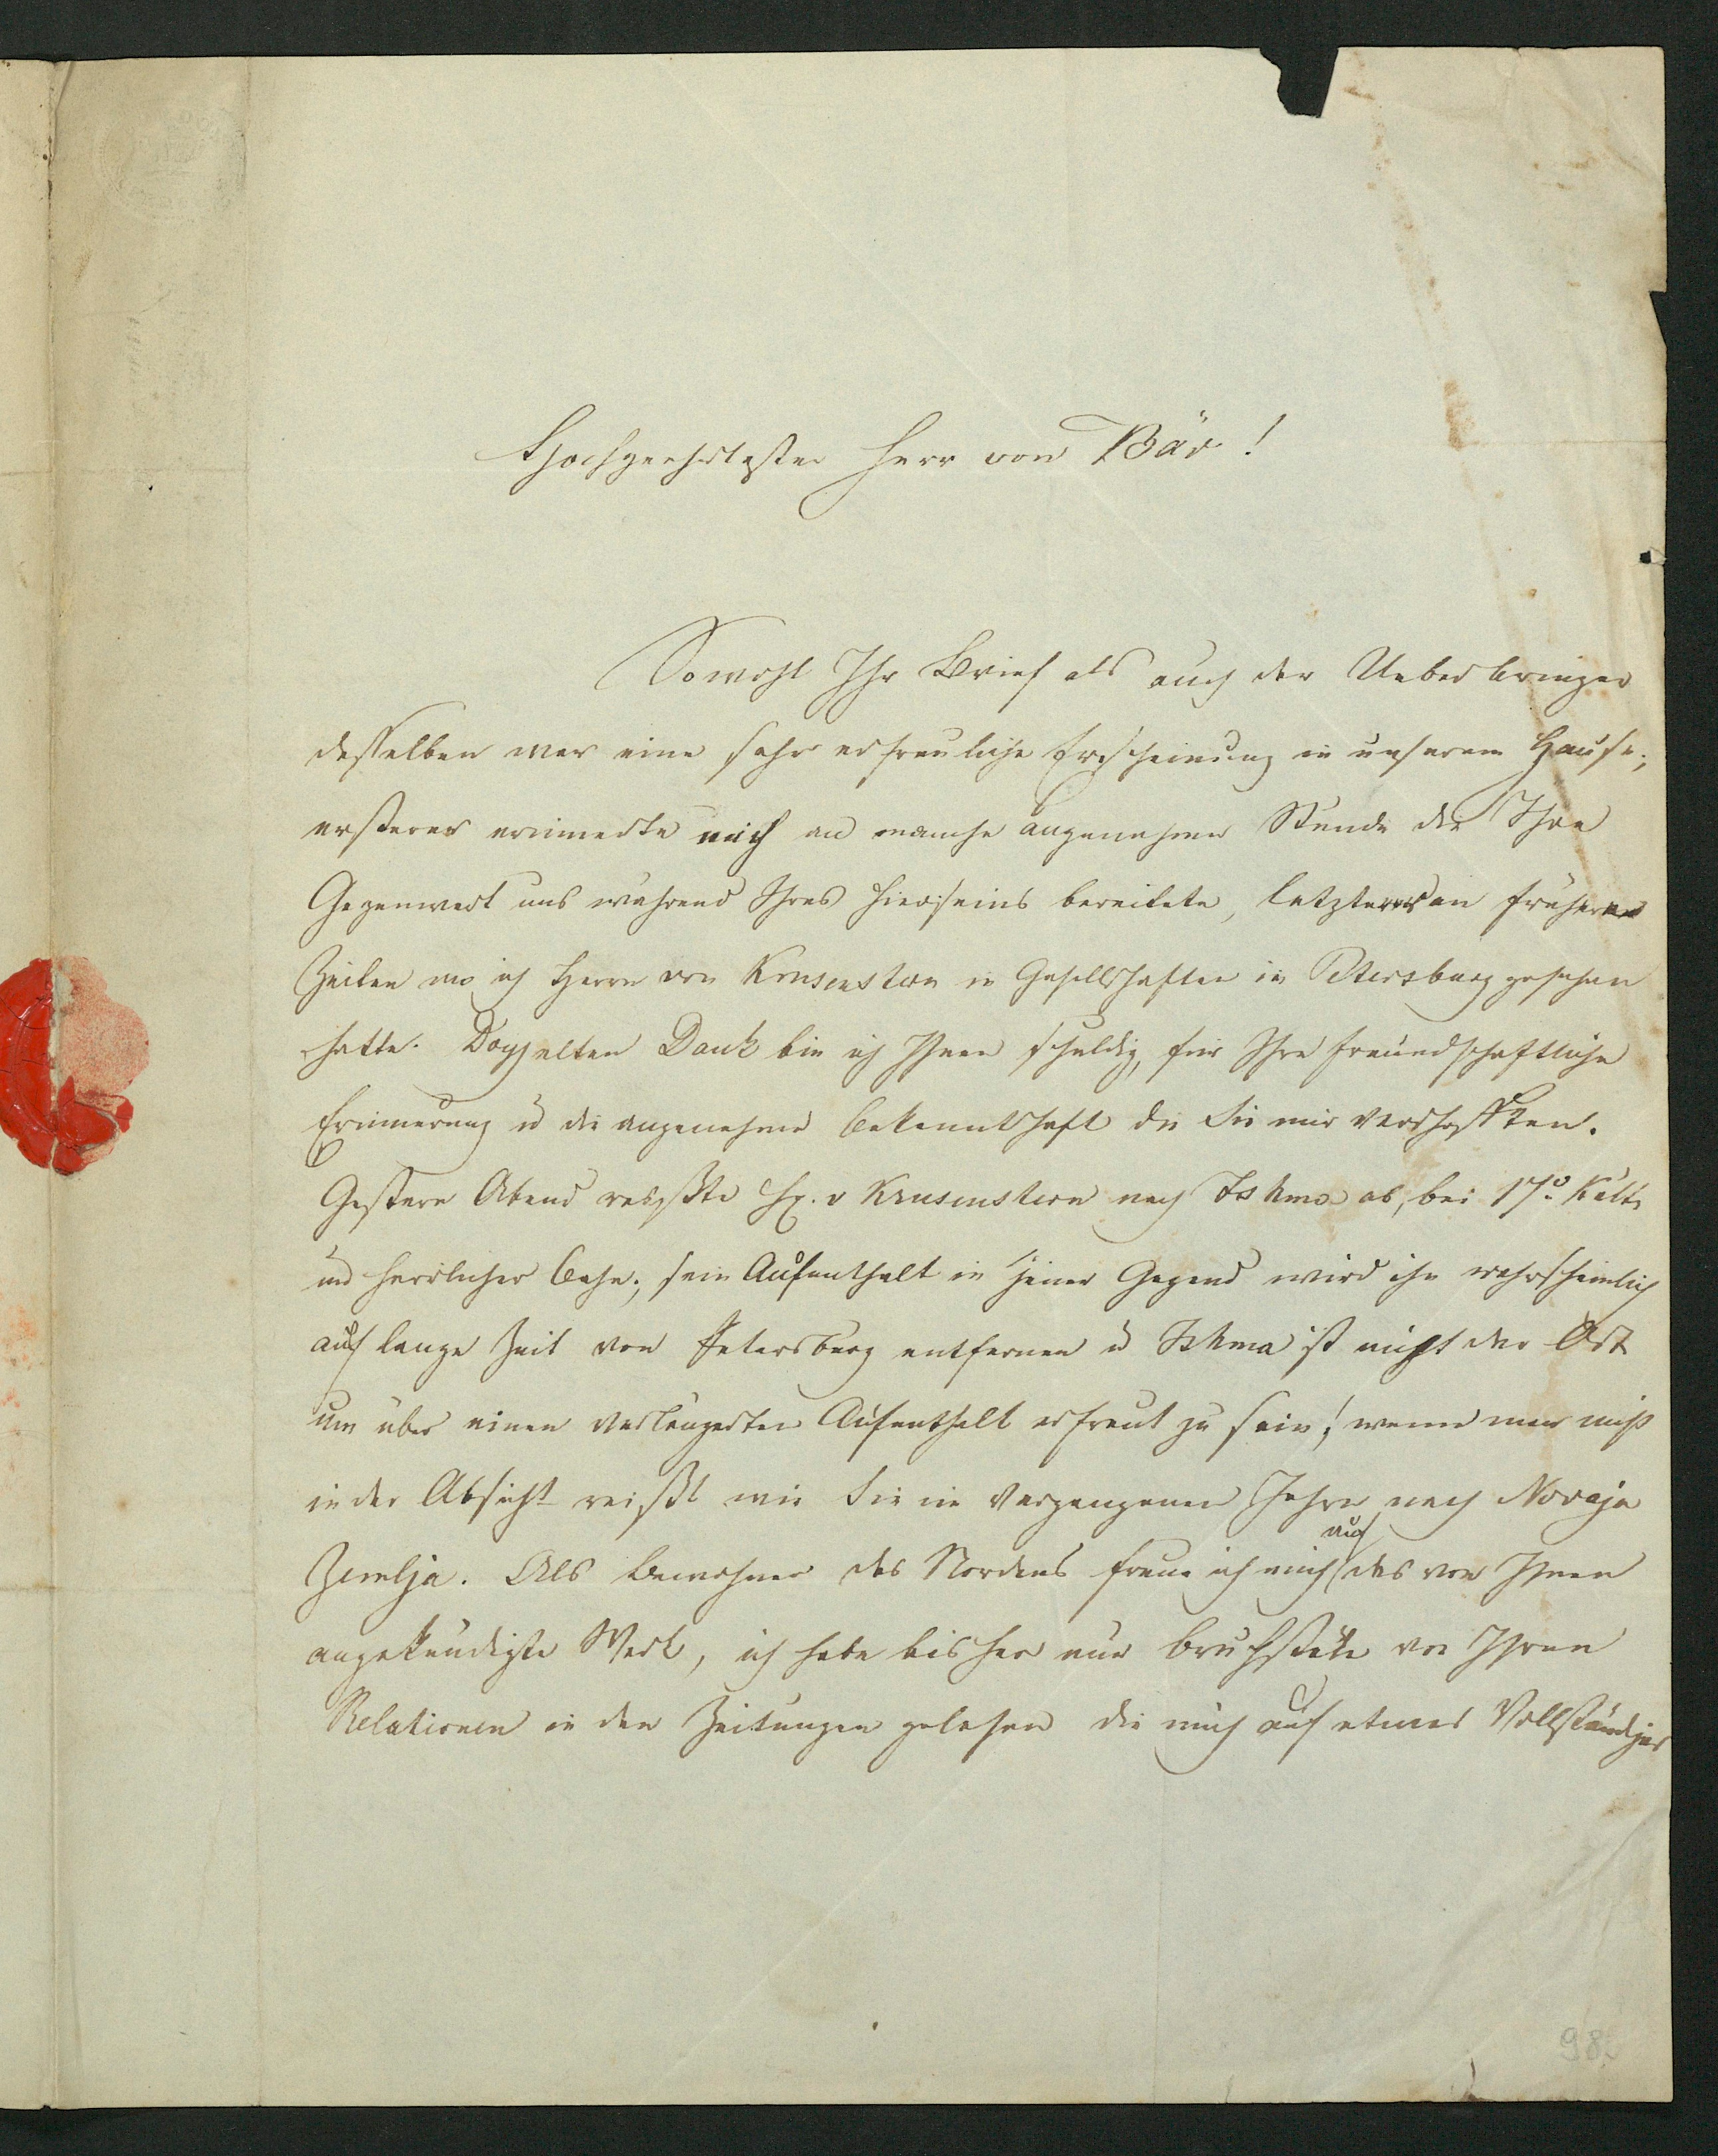 Hochgeehrtester Herr von Bär!
Sowohl Ihr Brief als auch der Ueberbringer
desselben war eine sehr erfreuliche Erscheinung in unserem Hause;
ersterer erinnerte mich an manche angenehme Stunde die Ihre
Gegenwart uns während Ihres Hierseins bereitete, letzterer an frühere
Zeiten wo ich Herrn von Krusenstern in Gesellschaften in Petersburg gesehen
hatte. Doppelten Dank bin ich Ihnen schuldig, für Ihre freundschaftliche
Erinnerung u die angenehme Bekanntschaft die Sie mir verschafften.
Gestern Abend reiste H. v Krusenstern nach Ishma ab, bei 17° Kälte
und herrlicher Bahn; sein Aufenthalt in jener Gegend wird ihn wahrscheinlich
auf lange Zeit von Petersburg entfernen u Ishma ist nicht der Ort
um über einen verlängerten Aufenthalt erfreut zu sein! wenn man nicht
in der Absicht reißt wie Sie im vergangenen Jahre nach Novaja
Zemlja. Als Bewohner des Nordens freue ich mich auf das von Ihnen
angekündigte Werk, ich habe bisher nur Bruchstüke von Ihren
Relationen in den Zeitungen gelesen die mich auf etwas Vollständiges
98